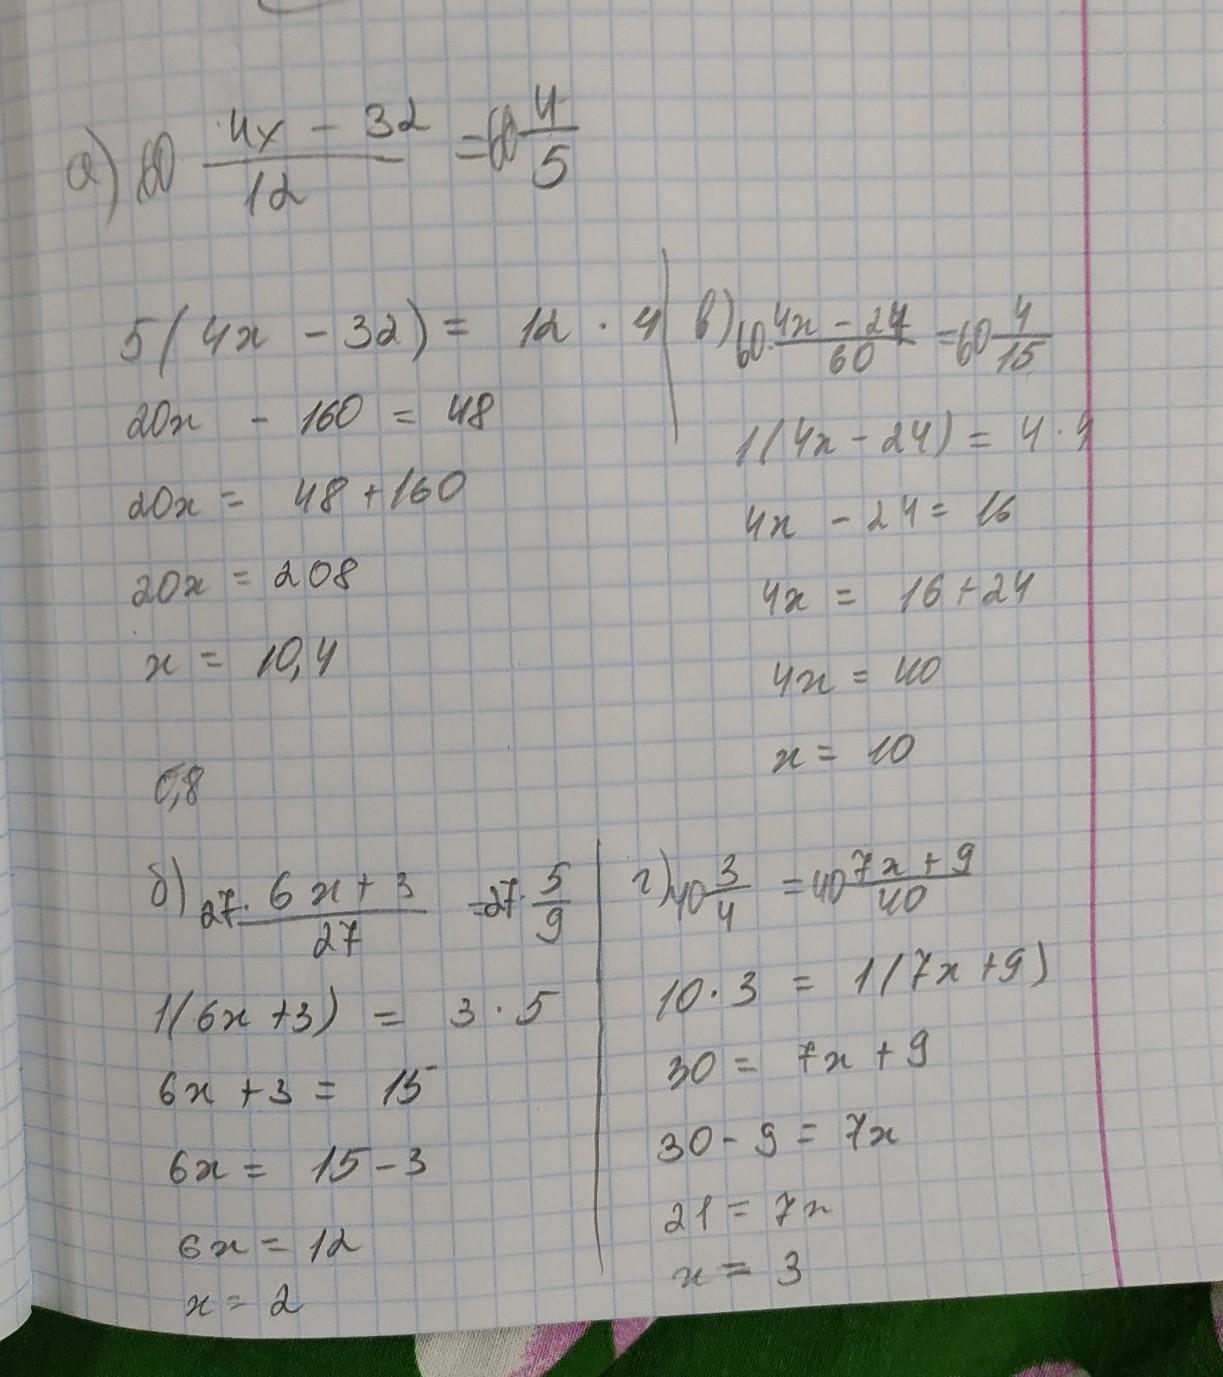 а) 60 (4x - 32)/12 = 60 4/5
5(4x - 32) = 12 · 4
20x - 160 = 48
20x = 48 + 160
20x = 208
x = 10,4
0,8
в) 60 · (4x - 24)/60 = 60 4/15
1(4x - 24) = 4 · 4
4x - 24 = 16
4x = 16 + 24
4x = 40
x = 10
б) 27 · (6x + 3)/27 = 27 · 5/9
1(6x + 3) = 3 · 5
6x + 3 = 15
6x = 15 - 3
6x = 12
x = 2
г) 40 3/4 = 40 (7x + 9)/40
10 · 3 = 1(7x + 9)
30 = 7x + 9
30 - 9 = 7x
21 = 7x
x = 3